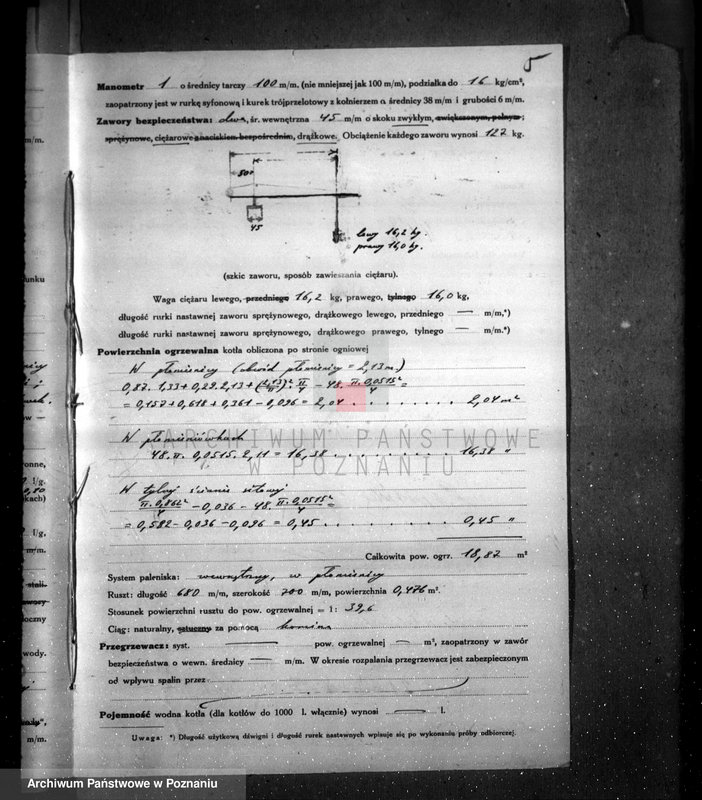 5
Manometr 1 o średnicy tarczy 100 m/m. (nie mniejszej jak 100 m/m), podziałka do 16 kg/cm²,
zaopatrzony jest w rurkę syfonową i kurek trójprzelotowy z kołnierzem o średnicy 38 m/m i grubości 6 m/m.
Zawory bezpieczeństwa: dwa, śr. wewnętrzna 45 m/m o skoku zwykłym, zwiększonym, pełnym;
sprężynowe, ciężarowe naciskiem bezpośrednim, drążkowe. Obciążenie każdego zaworu wynosi 127 kg.
50
45
lewy 16,2 kg.
prawy 16,0 kg.
(szkic zaworu, sposób zawieszania ciężaru).
Waga ciężaru lewego, przedniego 16,2 kg, prawego, tylnego 16,0 kg,
długość rurki nastawnej zaworu sprężynowego, drążkowego lewego, przedniego — m/m,*)
długość rurki nastawnej zaworu sprężynowego, drążkowego prawego, tylnego — m/m,*)
Powierzchnia ogrzewalna kotła obliczona po stronie ogniowej
W płomienicy (obwód płomienicy = 2,13 m.)
0,87. 1,33 + 0,29. 2,13 + (2,13/π)² π/4 - 48. π. 0,0515²/4 =
= 0,157 + 0,618 + 0,361 - 0,096 = 2,04 . . . . . . . . . 2,04 m²
W płomieniówkach
48. π. 0,0515. 2,11 = 16,38 . . . . . . . . . 16,38 "
W tylnej ścianie sitowej
π. 0,862²/4 - 0,036 - 48. π. 0,0515²/4 =
= 0,582 - 0,036 - 0,096 = 0,45 . . . . . . . . . 0,45 "
ARCHIWUM PAŃSTWOWE
W POZNANIU
Całkowita pow. ogrz. 18,87 m²
System paleniska: wewnętrzny, w płomienicy
Ruszt: długość 680 m/m, szerokość 700 m/m, powierzchnia 0,476 m².
Stosunek powierzchni rusztu do pow. ogrzewalnej = 1: 39,6
Ciąg: naturalny, sztuczny za pomocą komina
Przegrzewacz: syst. — pow. ogrzewalnej — m², zaopatrzony w zawór
bezpieczeństwa o wewn. średnicy — m/m. W okresie rozpalania przegrzewacz jest zabezpieczonym
od wpływu spalin przez
Pojemność wodna kotła (dla kotłów do 1000 l. włącznie) wynosi — l.
Uwaga: *) Długość użytkową dźwigni i długość rurek nastawnych wpisuje się po wykonaniu próby odbiorczej.
Archiwum Państwowe w Poznaniu